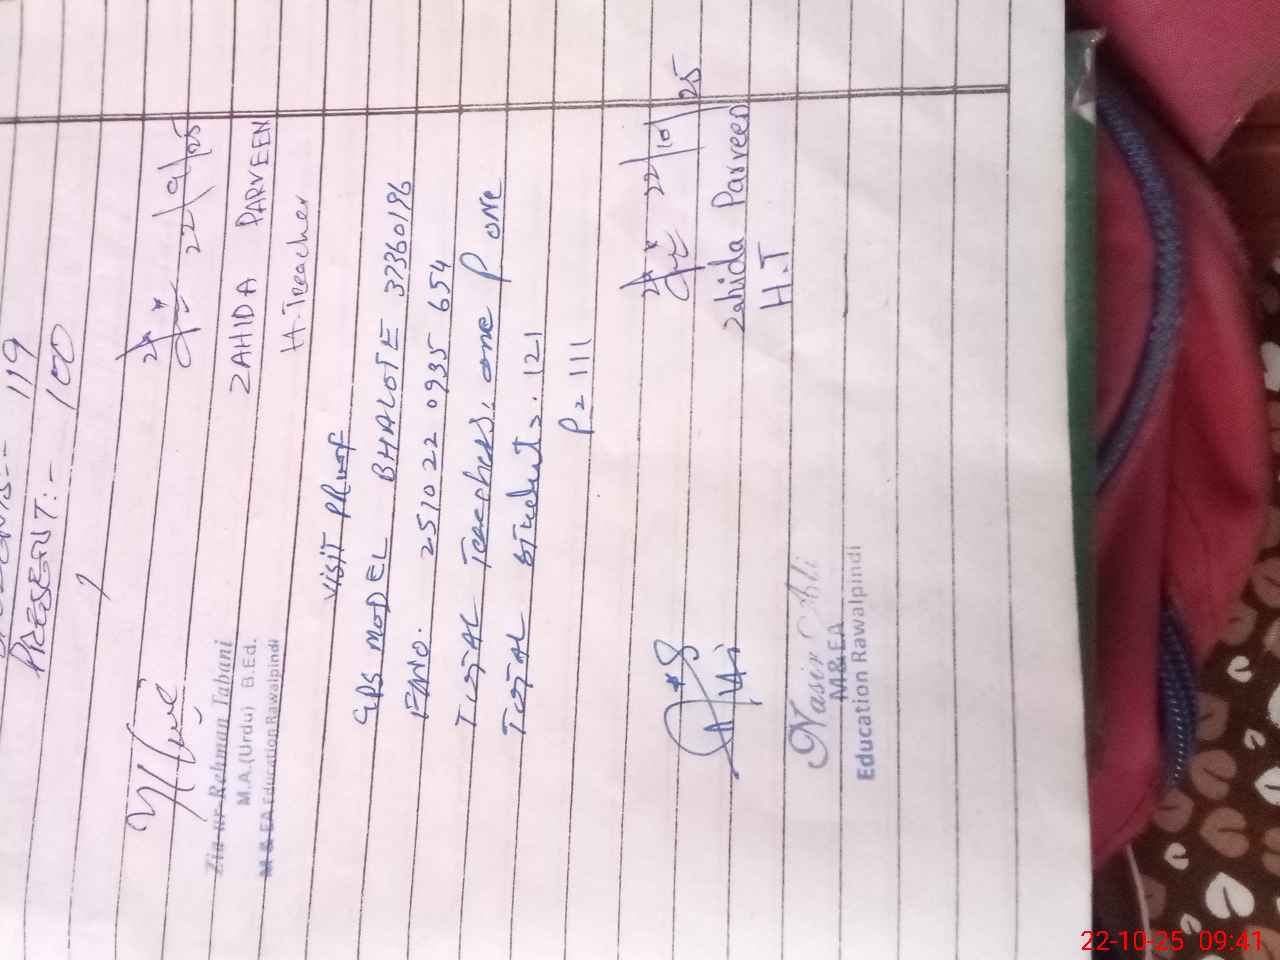 119
PRESENT:- 100
22/9/25
ZAHIDA PARVEEN
H.Treacher
Zia ur Rehman Tabani
M.A.(Urdu) B.Ed.
M & EA Education Rawalpindi
VISIT PRoof
GPS MODEL BHALOTE 37360196
FNNO. 251022 0935 654
TOTAL Teachers, one P one
TOTAL Student 2. 121
P 2 111
22/10/25
Zahida Parveen
H.T
Nasir Ali
M&EA
Education Rawalpindi
22-10-25 09:41